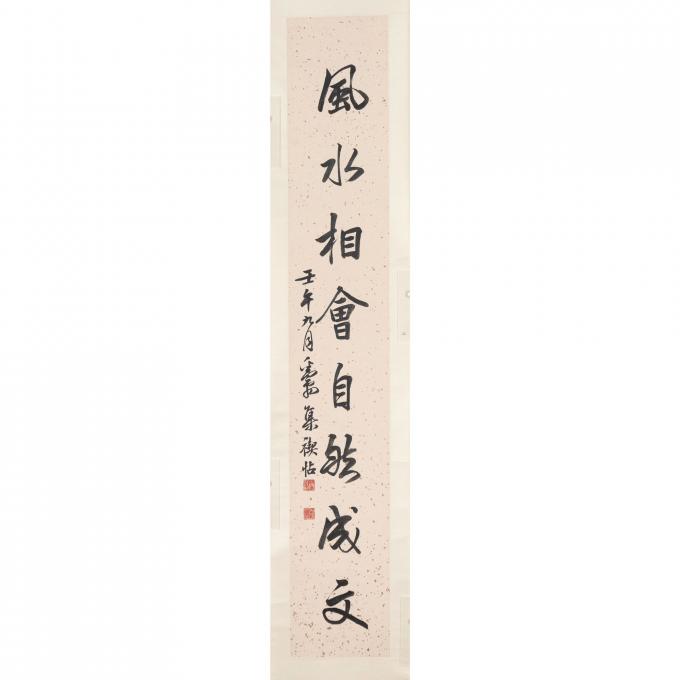 風水相會自然成文
壬午九月 集禊帖